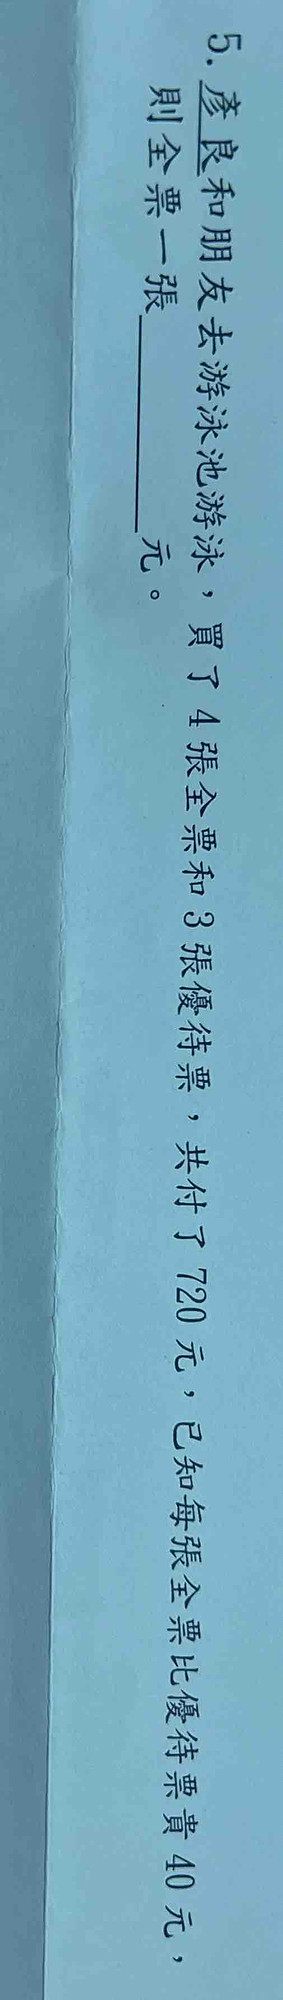 5. 彥良和朋友去游泳池游泳，買了 4 張全票和 3 張優待票，共付了 720 元，已知每張全票比優待票貴 40 元，
則全票一張________元。